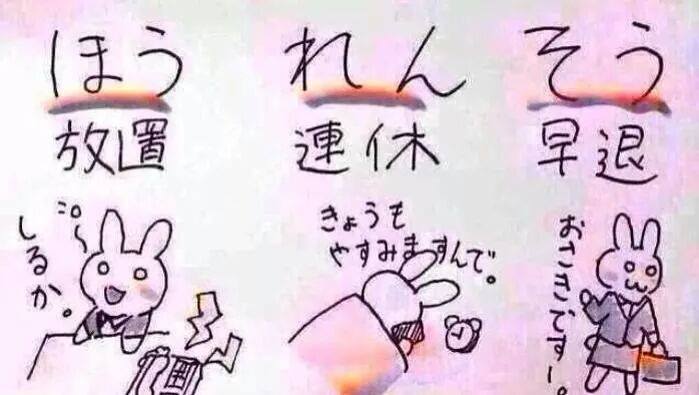 ほう
放置
しるか。
れん
連休
きょうも
やすみますんで。
そう
早退
おさきでーす。